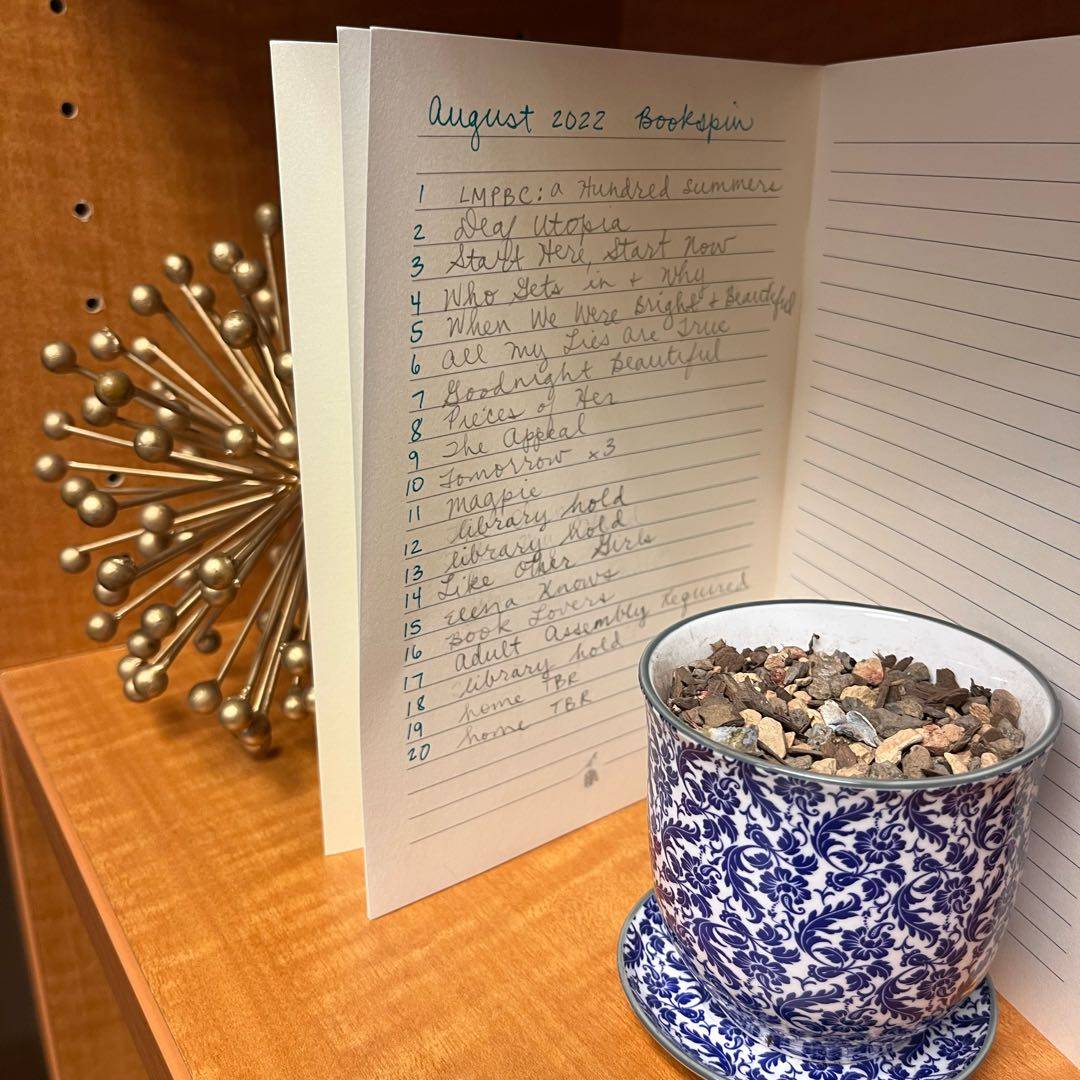 August 2022 Bookspin
1 LMPBC: a Hundred Summers
2 Deaf Utopia
3 Start Here, Start Now
4 Who Gets in + Why
5 When We Were Bright & Beautiful
6 all my Lies are True
7 Goodnight Beautiful
8 Pieces of Her
9 The Appeal
10 Tomorrow x3
11 magpie
12 library hold
13 library hold
14 Like Other Girls
15 Elena Knows
16 Book Lovers
17 adult assembly Required
18 library hold
19 home TBR
20 home TBR